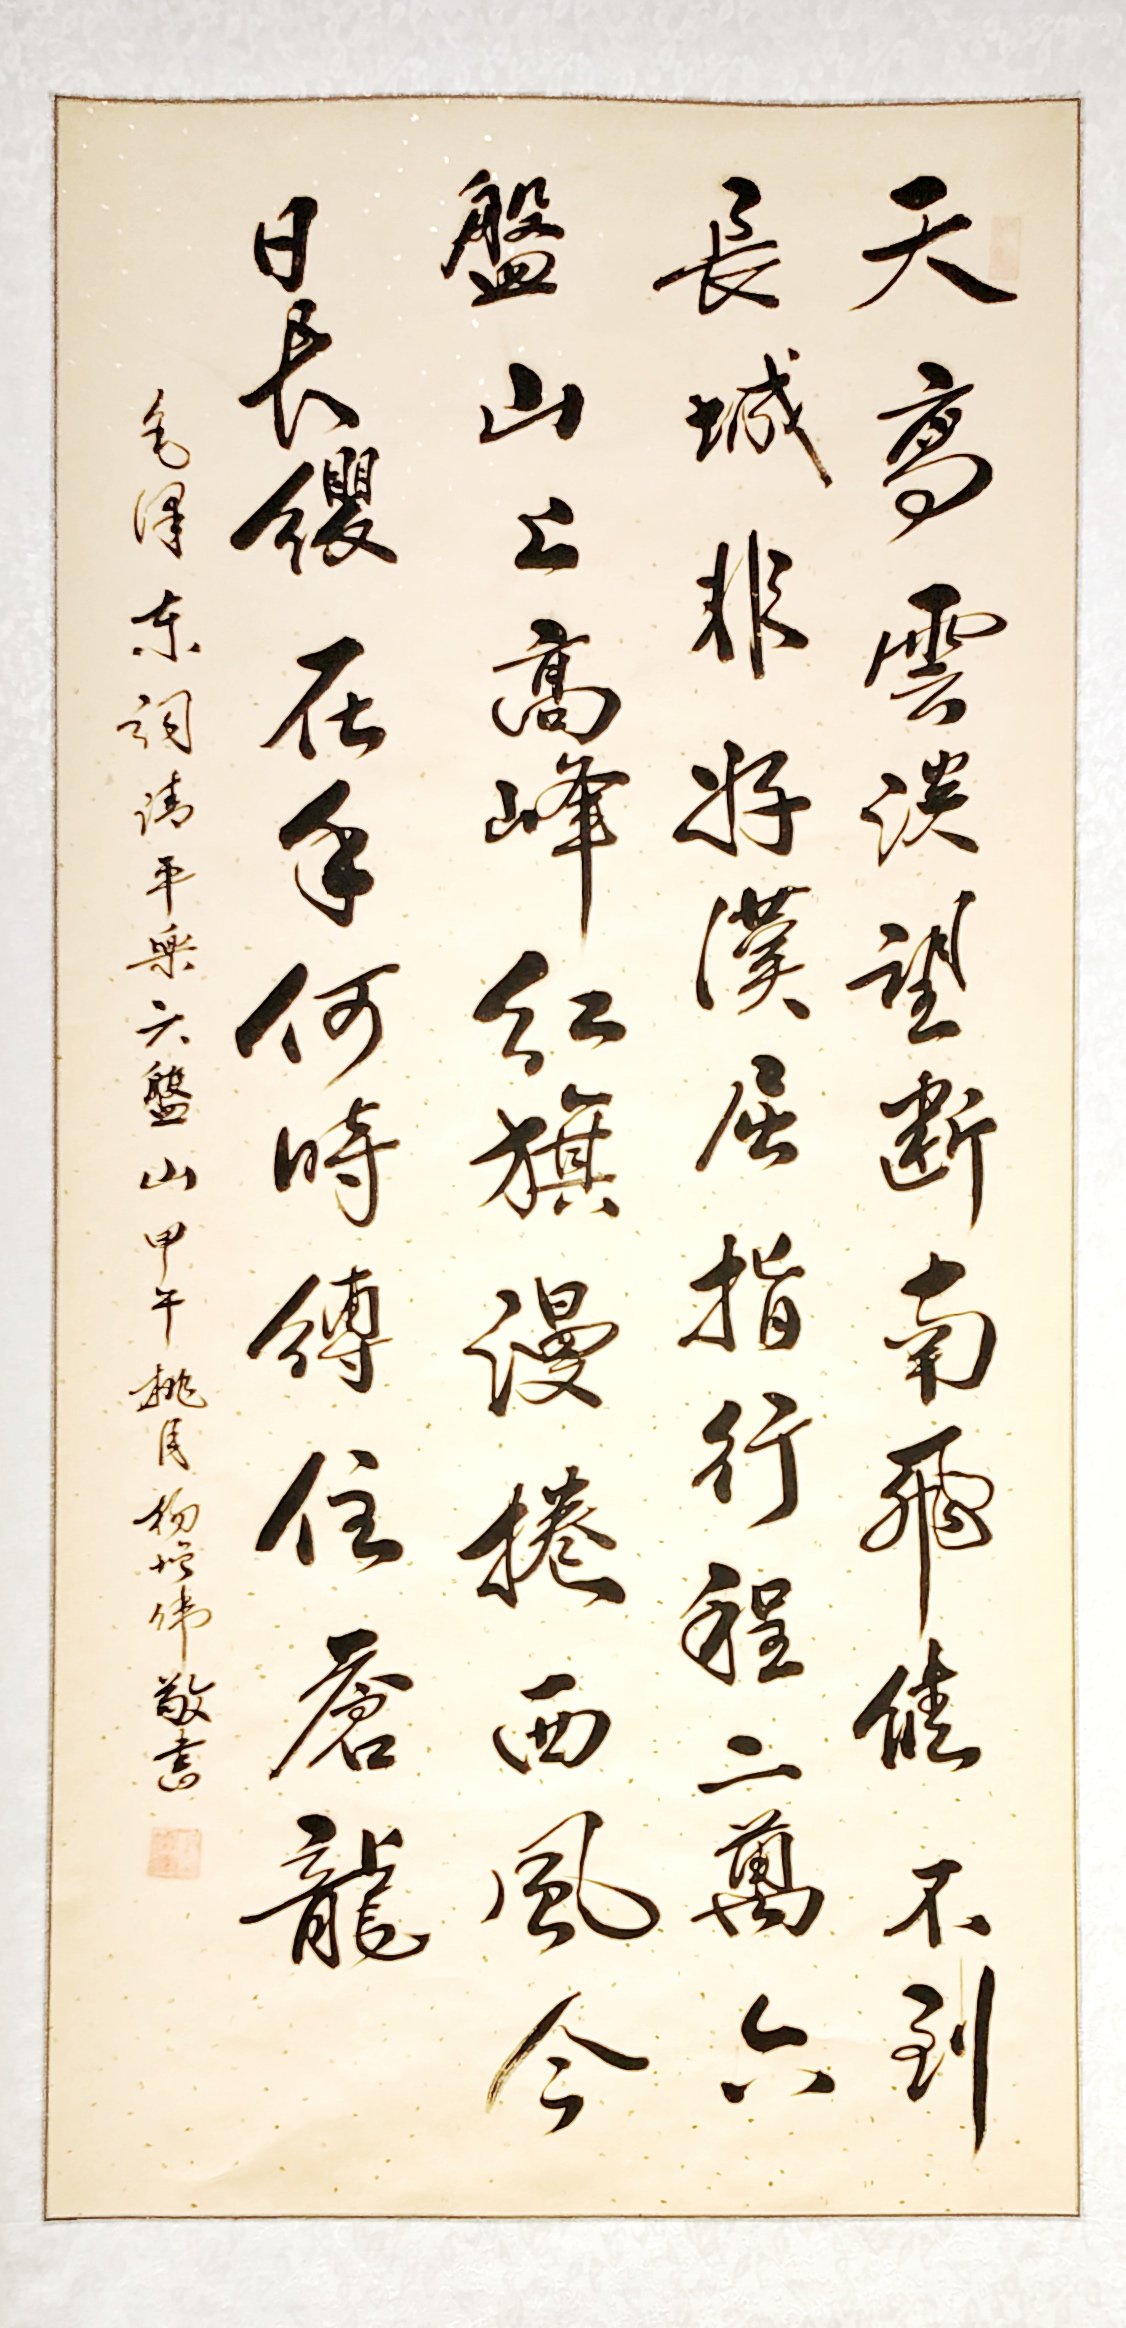 天高雲淡望斷南飛雁不到
長城非好漢屈指行程二萬六
盤山上高峰紅旗漫捲西風今
日长纓在手何時縛住蒼龍
毛澤东詞清平樂六盤山甲午桃月楊增偉敬書